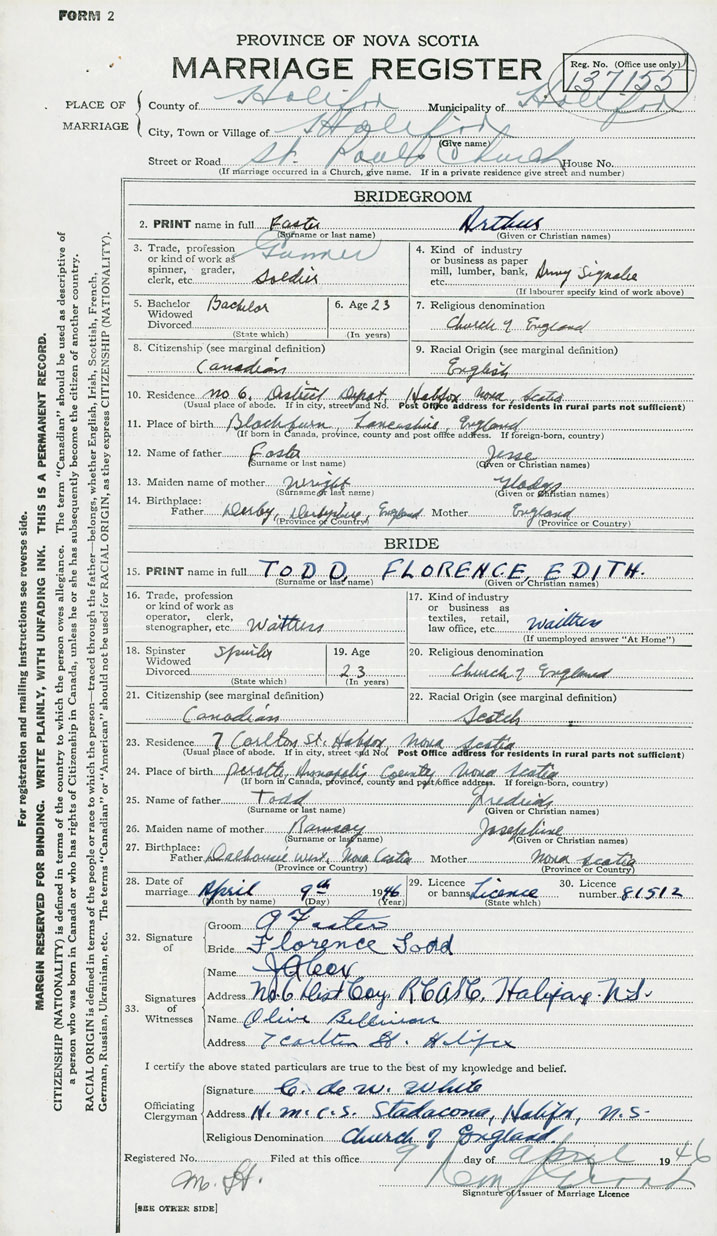 FORM 2
PROVINCE OF NOVA SCOTIA
MARRIAGE REGISTER
Reg. No. (Office use only)
137155
PLACE OF MARRIAGE
County of Halifax Municipality of Halifax
City, Town or Village of Halifax
(Give name)
Street or Road St. Paul's Church House No.
(If marriage occurred in a Church, give name. If in a private residence give street and number)
BRIDEGROOM
2. PRINT name in full Foster Arthur
(Surname or last name) (Given or Christian names)
3. Trade, profession or kind of work as spinner, grader, clerk, etc. Gunner Soldier
4. Kind of industry or business as paper mill, lumber, bank, etc. Army Signals
(If labourer specify kind of work above)
5. Bachelor Widowed Divorced Bachelor
(State which)
6. Age 23
(In years)
7. Religious denomination
Church of England
8. Citizenship (see marginal definition)
Canadian
9. Racial Origin (see marginal definition)
English
10. Residence No 6. District Depot, Halifax Nova Scotia
(Usual place of abode. If in city, street and No. Post Office address for residents in rural parts not sufficient)
11. Place of birth Blackburn, Lancashire, England
(If born in Canada, province, county and post office address. If foreign-born, country)
12. Name of father Foster Jesse
(Surname or last name) (Given or Christian names)
13. Maiden name of mother Wright Gladys
(Surname or last name) (Given or Christian names)
14. Birthplace:
Father Derby, Derbyshire, England Mother England
(Province or Country) (Province or Country)
BRIDE
15. PRINT name in full TODD, FLORENCE, EDITH.
(Surname or last name) (Given or Christian names)
16. Trade, profession or kind of work as operator, clerk, stenographer, etc. Waitress
17. Kind of industry or business as textiles, retail, law office, etc. Waittress
(If unemployed answer "At Home")
18. Spinster Widowed Divorced Spinster
(State which)
19. Age
23
(In years)
20. Religious denomination
Church of England
21. Citizenship (see marginal definition)
Canadian
22. Racial Origin (see marginal definition)
Scotch
23. Residence 7 Carlton St. Halifax, Nova Scotia
(Usual place of abode. If in city, street and No. Post Office address for residents in rural parts not sufficient)
24. Place of birth Perotte, Annapolis County Nova Scotia
(If born in Canada, province, county and post office address. If foreign-born, country)
25. Name of father Todd Fredrick
(Surname or last name) (Given or Christian names)
26. Maiden name of mother Ramsay Josephine
(Surname or last name) (Given or Christian names)
27. Birthplace:
Father Dalhousie West, Nova Scotia Mother Nova Scotia
(Province or Country) (Province or Country)
28. Date of marriage April 9th 1946
(Month by name) (Day) (Year)
29. Licence or banns Licence
(State which)
30. Licence number 81512
32. Signature of
Groom A Foster
Bride Florence Todd
33. Signatures of Witnesses
Name J A Cox
Address No 6 Dist Coy. R.C.A.S.C. Halifax. N.S.
Name Olive
Address 7 carlton St. Halifax
I certify the above stated particulars are true to the best of my knowledge and belief.
Officiating Clergyman
Signature C. de W. White
Address H.M.C.S. Stadacona, Halifax, N.S.
Religious Denomination Church of England.
Registered No. Filed at this office 9 day of April 1946
Signature of Issuer of Marriage Licence
[SEE OTHER SIDE]
For registration and mailing instructions see reverse side.
MARGIN RESERVED FOR BINDING. WRITE PLAINLY, WITH UNFADING INK. THIS IS A PERMANENT RECORD.
CITIZENSHIP (NATIONALITY) is defined in terms of the country to which the person owes allegiance. The term "Canadian" should be used as descriptive of
a person who was born in Canada or who has rights of Citizenship in Canada, unless he or she has subsequently become the citizen of another country.
RACIAL ORIGIN is defined in terms of the people or race to which the person—traced through the father—belongs, whether English, Irish, Scottish, French,
German, Russian, Ukrainian, etc. The terms "Canadian" or "American" should not be used for RACIAL ORIGIN, as they express CITIZENSHIP (NATIONALITY).